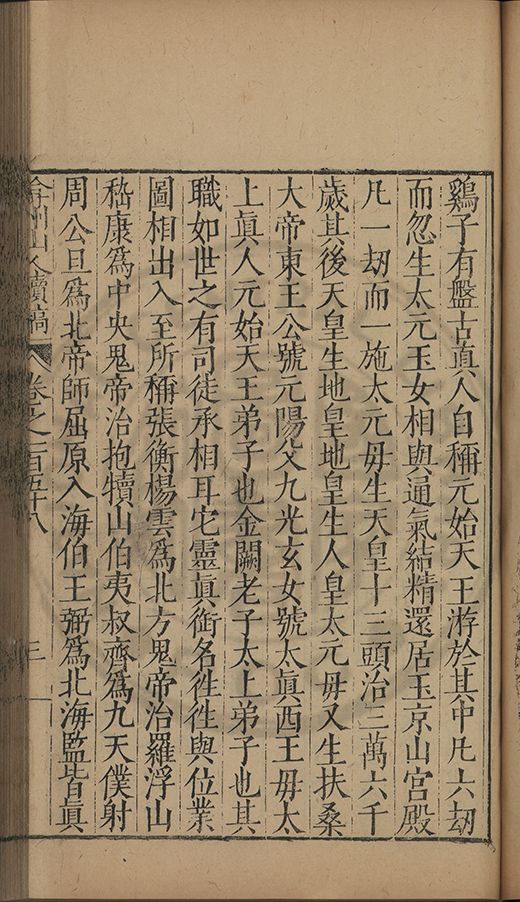 鷄子有盤古眞人自稱元始天王游於其中凡六刼
而忽生太元玉女相與通氣結精還居玉京山宮殿
凡一刼而一施太元母生天皇十三頭治三萬六千
歲其後天皇生地皇地皇生人皇太元母又生扶桑
大帝東王公號元陽父九光玄女號太眞西王母太
上眞人元始天王弟子也金闕老子太上弟子也其
職如世之有司徒承相耳宅靈眞銜名徃徃與位業
圖相出入至所稱張衡楊雲爲北方鬼帝治羅浮山
嵇康爲中央鬼帝治抱犢山伯夷叔齊爲九天僕射
周公旦爲北帝師屈原入海伯王弼爲北海監皆眞
弇州山人續稿 卷之一百五十八 三